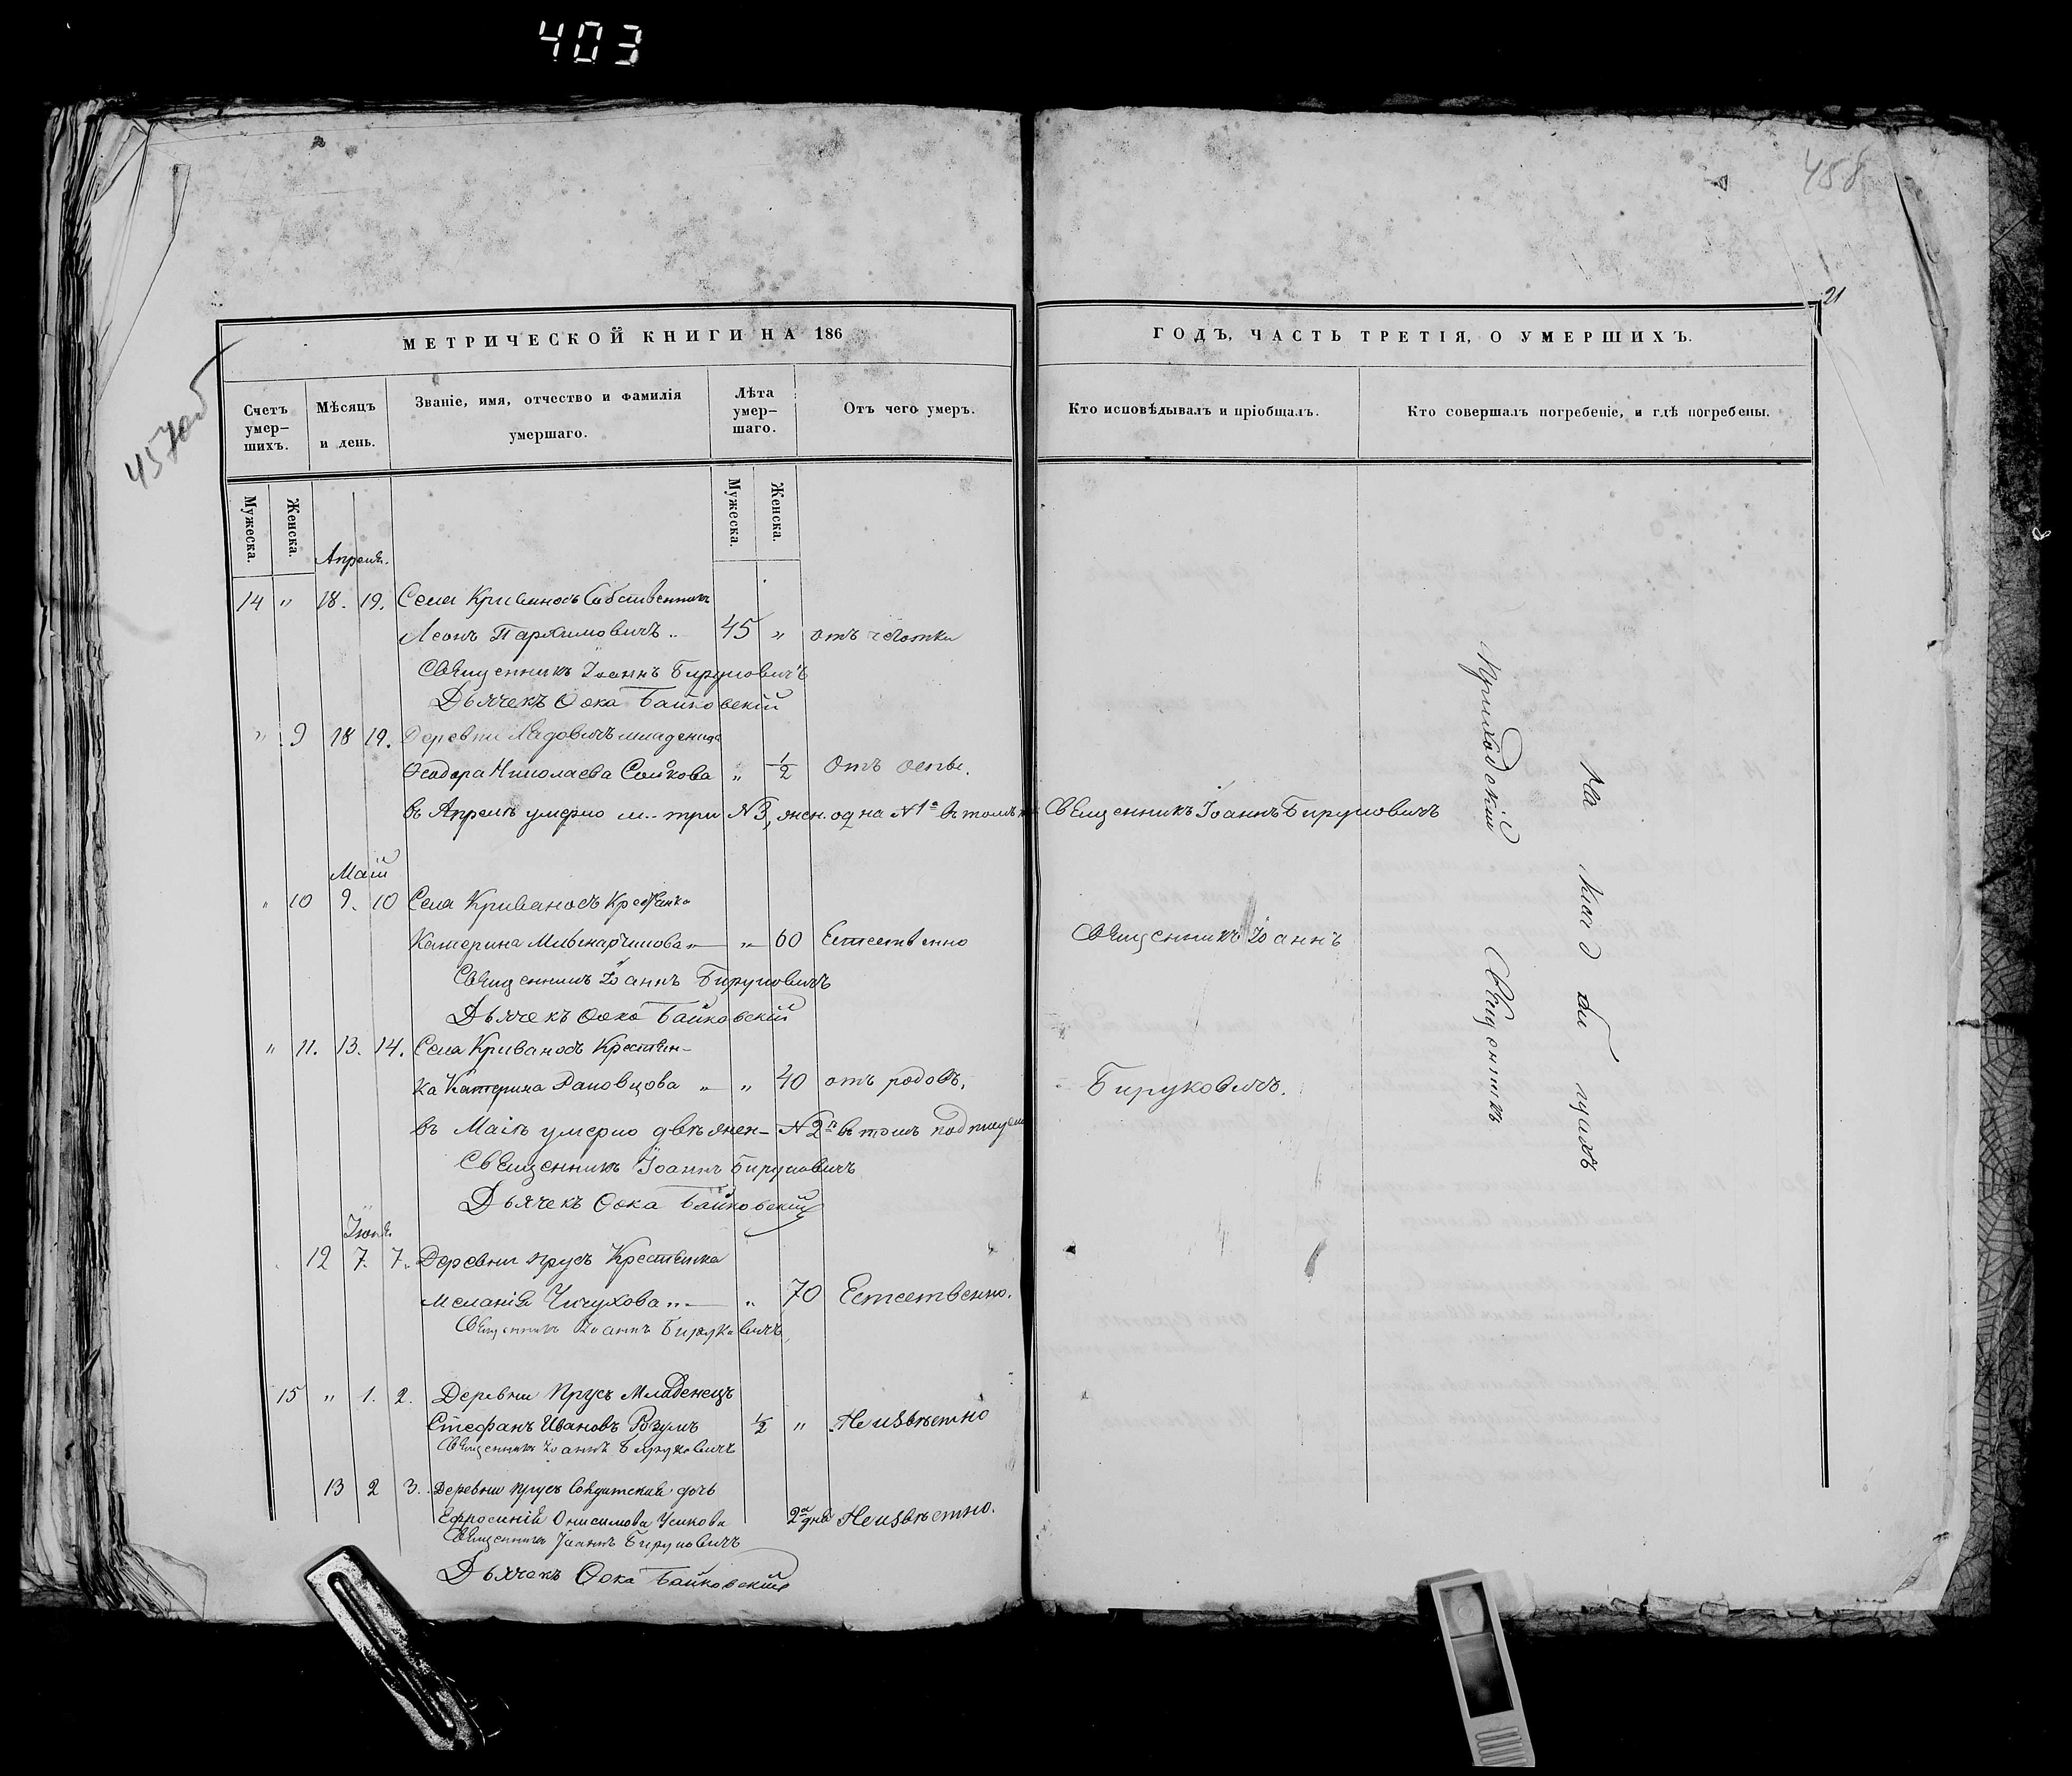 403
458
21
457об
МЕТРИЧЕСКОЙ КНИГИ НА 186
ГОДЪ, ЧАСТЬ ТРЕТІЯ, О УМЕРШИХЪ.
Счетъ умер-шихъ.
Мѣсяцъ и день.
Званіе, имя, отчество и фамилія умершаго.
Лѣта умер-шаго.
Отъ чего умеръ.
Кто исповѣдывалъ и пріобщалъ.
Кто совершалъ погребеніе, и гдѣ погребены.
Мужеска.
Женска.
Мужеска.
Женска.
Апреля.
14 " 18. 19. Села Криваносъ Собственникъ
Леонъ Пархимовичъ 45 " отъ
Священникъ Іоаннъ Бируковичъ
Дьячекъ Фока Байковскій
" 9 18 19. Деревни младеница
Ѳеодора Николаева Сойкова " 1/2 Отъ оспы.
въ Апрелѣ умерло м. три №3, жен. одна №1 въ томъ Священникъ Іоаннъ Бируковичъ
Май
" 10 9. 10 Села Криваносъ Крестянка
Катерина " 60 Естественно
Священникъ Іоаннъ
Священникъ Іоаннъ Бируковичъ
Дьячекъ Фока Байковскій
" 11. 13. 14. Села Криваносъ Крестян-
ка Катерина " " 40 отъ родовъ.
Бируковичъ.
въ Маіѣ умерло двѣ жен- №2 въ томъ
Священникъ Іоаннъ Бируковичъ
Дьячекъ Фока Байковскій
Іюня.
12 7. 7. Деревни Прусъ Крестянка
Меланія Чичухова " 70 Естественно.
Священникъ Іоаннъ Бируковичъ
15 " 1. 2. Деревни Прусъ Младенецъ
Стефанъ Ивановъ Розумъ 1/2 " Неизвѣстно
Священникъ Іоаннъ Бируковичъ
13 2 3. Деревни Прусъ Солдатская дочь
Ефросинія Онисимова Усикова 2а дня Неизвѣстно.
Священникъ Іоаннъ Бируковичъ
Дьячекъ Фока Байковскій
Приходскій Священникъ
На кладбищахъ